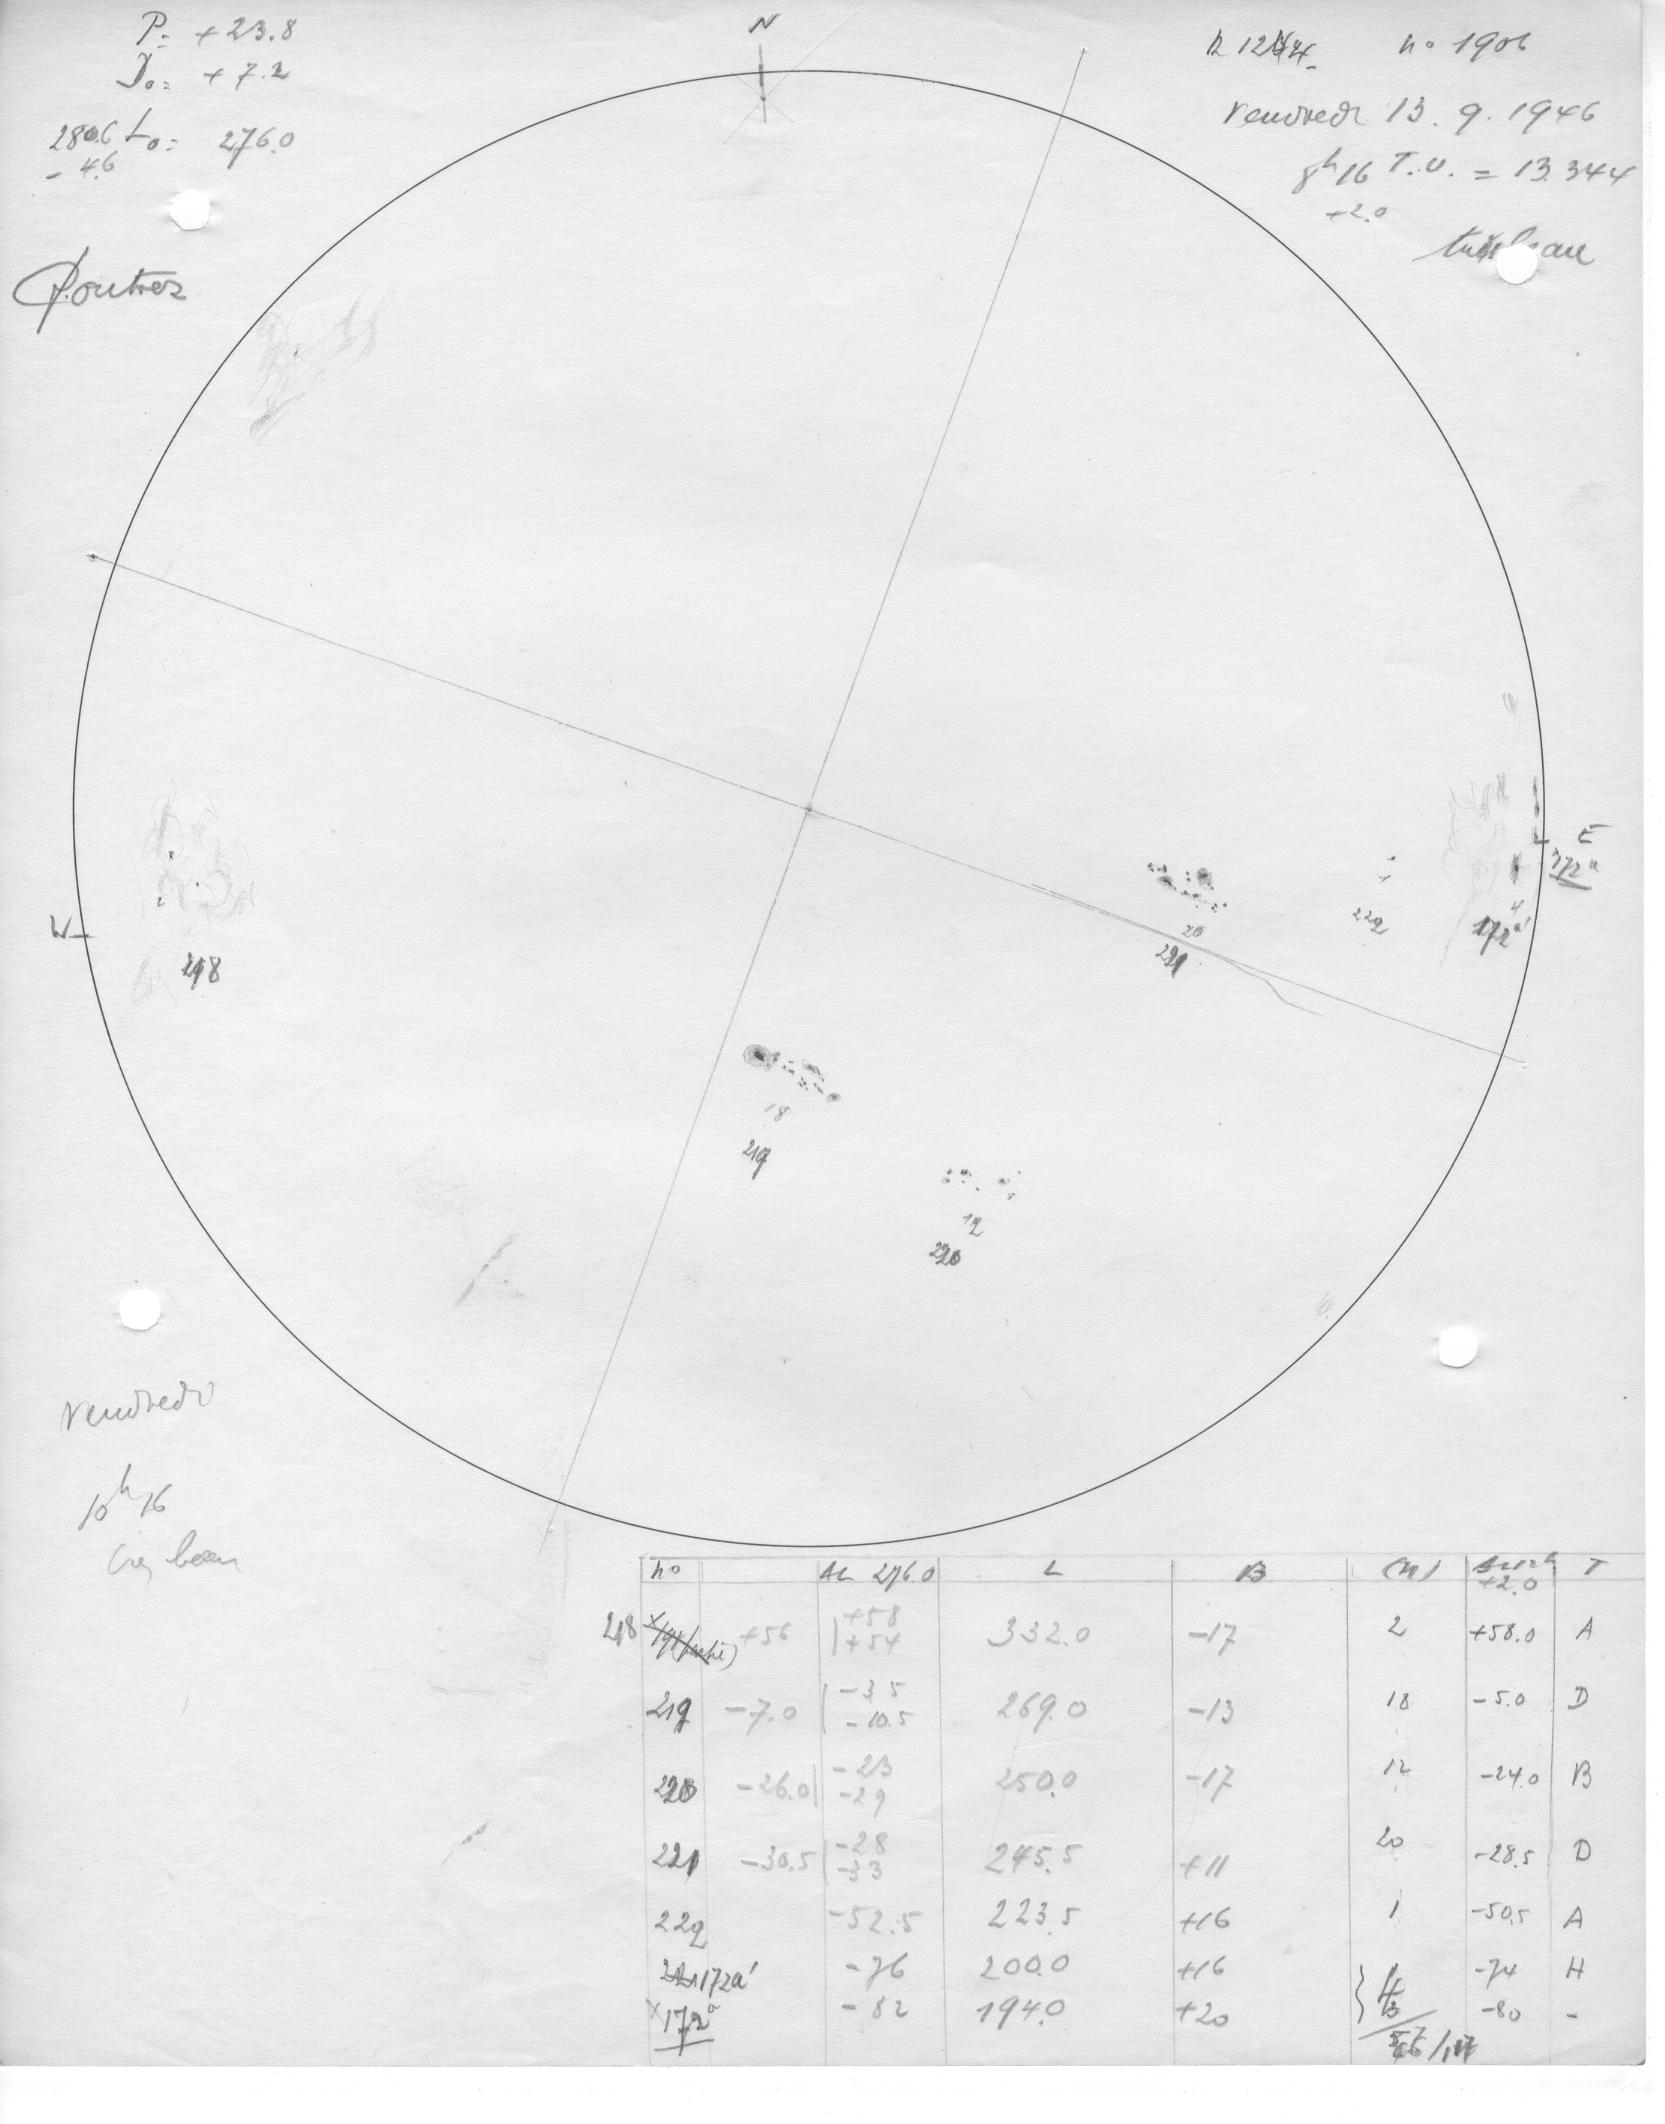 P= +23.8
280.6 L0= 276.0
- 4.6
N
no 1906
vendredi 13.9.1946
8h16 T.U. = 13.344
+2.0
E
172a
222
20
221
172a'
W
218
18
219
12
220
vendredi
10h16
no L B (N) +2.0 T
218 +56 +58 +54 332.0 -17 2 +58.0 A
219 -7.0 -3.5 -10.5 269.0 -13 18 -5.0 D
220 -26.0 -23 -29 250.0 -17 12 -24.0 B
221 -30.5 -28 -33 245.5 +11 20 -28.5 D
222 -52.5 223.5 +16 1 -50.5 A
172a' -76 200.0 +16 4 -74 H
172a -82 194.0 +20 -80 -